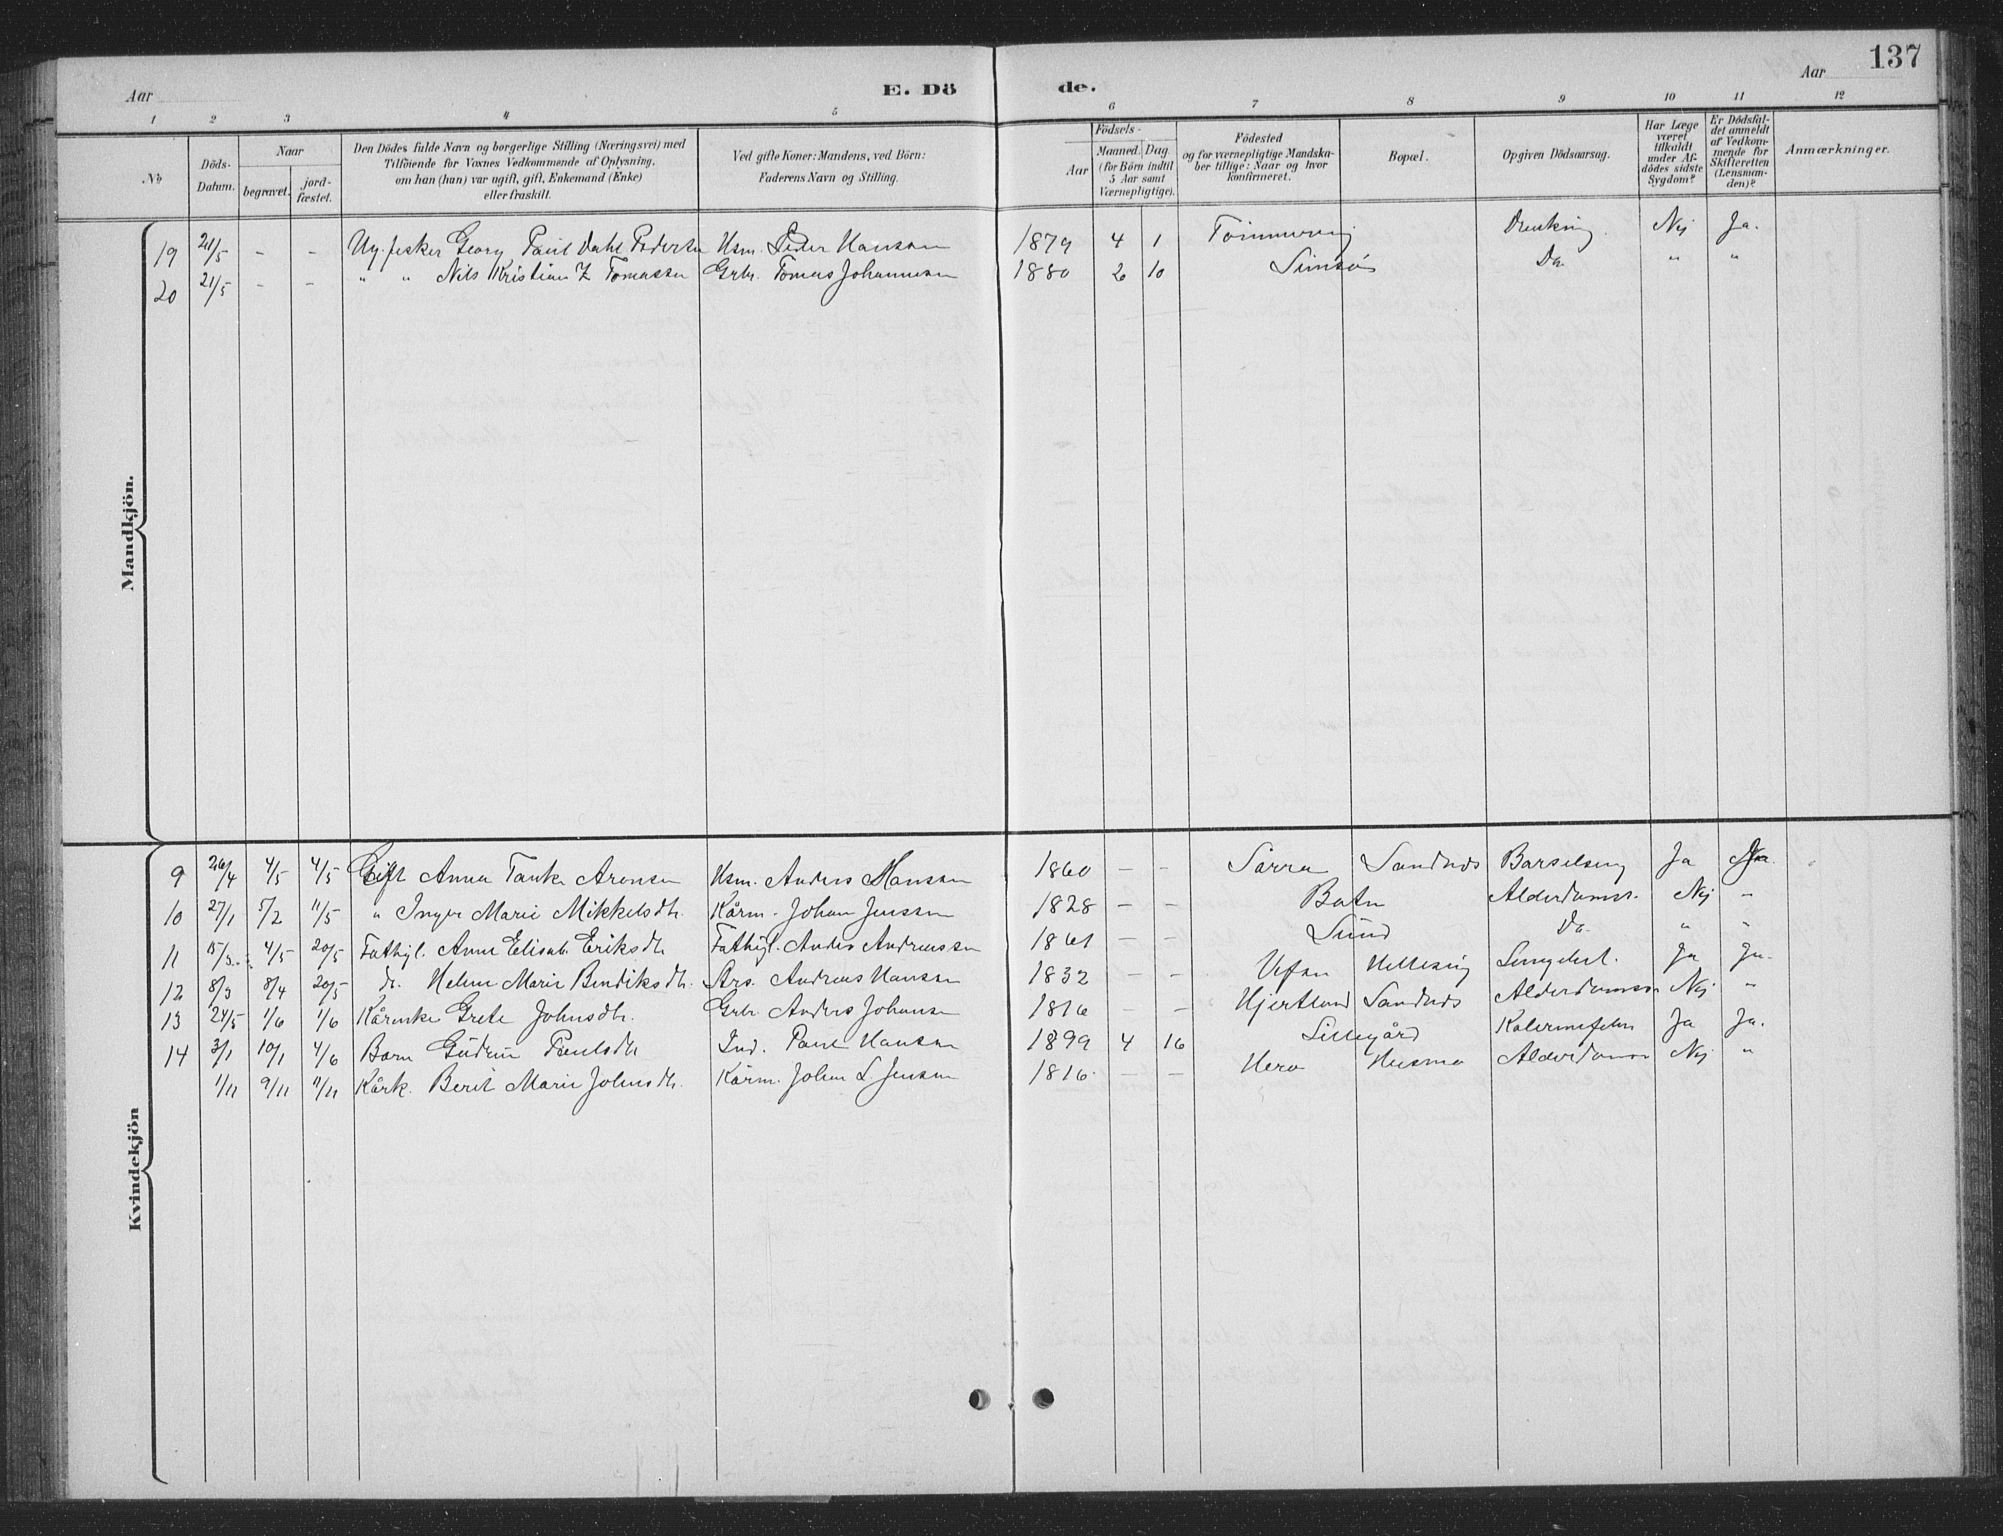 137
Aar
E. Dö
de.
Aar
1 2 3 4 5 6 7 8 9 10 11 12
No
Döds-Datum.
Naar
begravet.
jord-fæstet.
Den Dödes fulde Navn og borgerlige Stilling (Næringsvei) med
Tilföiende for Voxnes Vedkommende af Oplysning,
om han (hun) var ugift, gift, Enkemand (Enke)
eller fraskilt.
Ved gifte Koner: Mandens, ved Börn:
Faderens Navn og Stilling.
Födsels-
Aar
Maaned. Dag
(for Börn indtil
5 Aar samt
Værnepligtige).
Födested
og for værnepligtige Mandska-
ber tillige: Naar og hvor
konfirmeret.
Bopæl.
Opgiven Dödsaarsag.
Har Læge
været
tilkaldt
under Af-
dödes sidste
Sygdom?
Er Dödsfal-
det anmeldt
af Vedkom-
mende for
Skifteretten
(Lensman-
den)?
Anmærkninger.
Mandkjön.
19 21/5 - - Ug. fisker Georg Paul Dahl Pedersen Hsm. Peder Hansen 1879 4 1 Drukning. Nej Ja.
20 21/5 - - " " Nils Kristian Z Tomassen Grbr. Tomas Johannesen 1880 2 10 Do " "
Kvindekjön
9 26/4 4/5 4/5 Gift Anna Tanke Aronsen Hsm. Anders Hansen 1860 - - Sørra Sandnes Barselseng Ja
10 27/1 5/2 11/5 " Inger Marie Mikkelsdtr. Kårm. Johan Jenssen 1828 - - Batn Alderdomss. Nej "
11 4/5 20/5 Fathgl. Anne Elisab. Eriksdtr Fathigl. Anders Andreassen 1861 - - Sund Do. " "
12 8/3 8/4 20/5 do. Helene Marie Bendiksdtr. Ars. Andreas Hansen 1832 - - Hellesvig Lungebet. Ja Ja.
13 24/5 1/6 1/6 Kårenke Grete Johnsdtr. Grbr Anders Johansen 1816 - - Hjertland Sandnes Alderdomss Nej "
14 3/1 10/1 4/6 Barn Gudrun Paulsdtr Ind. Paul Hansen 1899 4 16 Lillegård Ja Ja.
1/11 9/11 11/11 Kårk. Berit Marie Johnsdtr. Kårm. Johan L. Jensen 1816 - - Herø Husmo Alderdomss Nej "